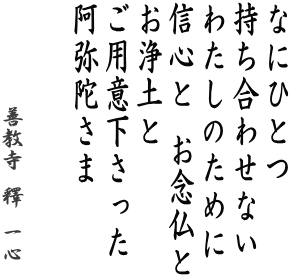 なにひとつ
持ち合わせない
わたしのために
信心と お念仏と
お浄土と
ご用意下さった
阿弥陀さま
善教寺 釋 一心